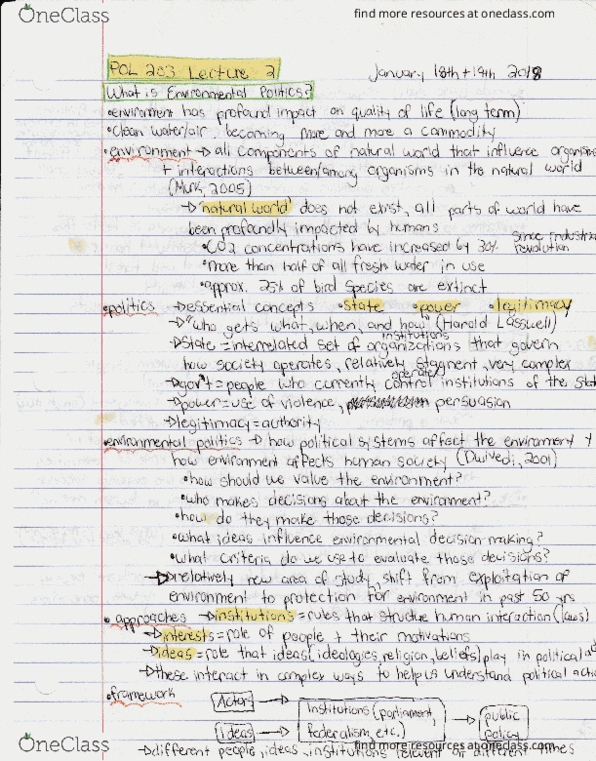 OneClass
find more resources at oneclass.com
POL 203 Lecture 2
January 18th + 19th 2018
What is Environmental Politics?
• environment has profound impact on quality of life (long term)
• Clean water/air becoming more and more a commodity
• environment → all components of natural world that influence organisms
+ interactions between/among organisms in the natural world
(Murk, 2005)
→ 'natural world' does not exist, all parts of world have
been profoundly impacted by humans
• CO2 concentrations have increased by 30% since industrial revolution
• more than half of all fresh water in use
• approx. 25% of bird species are extinct
• politics → essential concepts • state • power • legitimacy
→ "who gets what, when, and how" (Harold Lasswell)
→ State = interrelated set of organizations institutions that govern
how society operates, relatively stagnent, very complex
→ gov't = people who currently control operate institutions of the state
→ power = use of violence, persuasion
→ legitimacy = authority
• environmental politics → how political systems affect the environment +
how environment affects human society (Dwivedi, 2001)
• how should we value the environment?
• who makes decisions about the environment?
• how do they make those decisions?
• what ideas influence environmental decision making?
• what criteria do we use to evaluate those decisions?
→ relatively new area of study, shift from exploitation of
environment to protection for environment in past 50 yrs
• approaches → institutions = rules that structure human interaction (laws)
→ interests = role of people + their motivations
→ ideas = role that ideas (ideologies, religion, beliefs) play in political
→ these interact in complex ways to help us understand political
• framework
Actors →
Institutions (parliament, federalism, etc.) →
public policy
ideas →
→ different people, ideas, institutions relevant at different times
OneClass
find more resources at oneclass.com